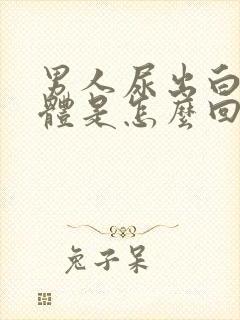 男人尿出白
體是怎麼回
兔子呆